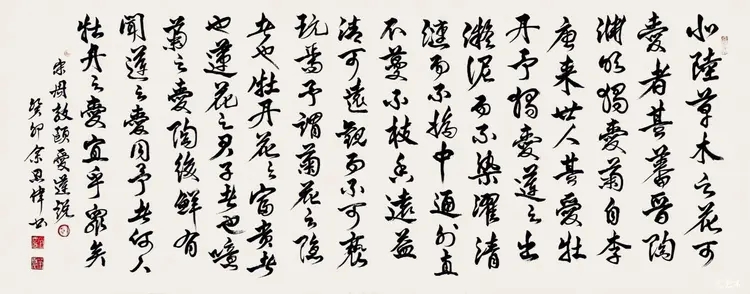 水陸草木之花可
愛者甚蕃晉陶
渊明獨愛菊自李
唐来世人甚愛牡
丹予獨愛蓮之出
淤泥而不染濯清
漣而不妖中通外直
不蔓不枝香遠益
清可遠觀而不可褻
玩焉予謂菊花之隐
者也牡丹花之富貴者
也蓮花之君子者也噫
菊之愛陶後鮮有
聞蓮之愛同予者何人
牡丹之愛宜乎衆矣
宋周敦頤愛蓮説
癸卯余思